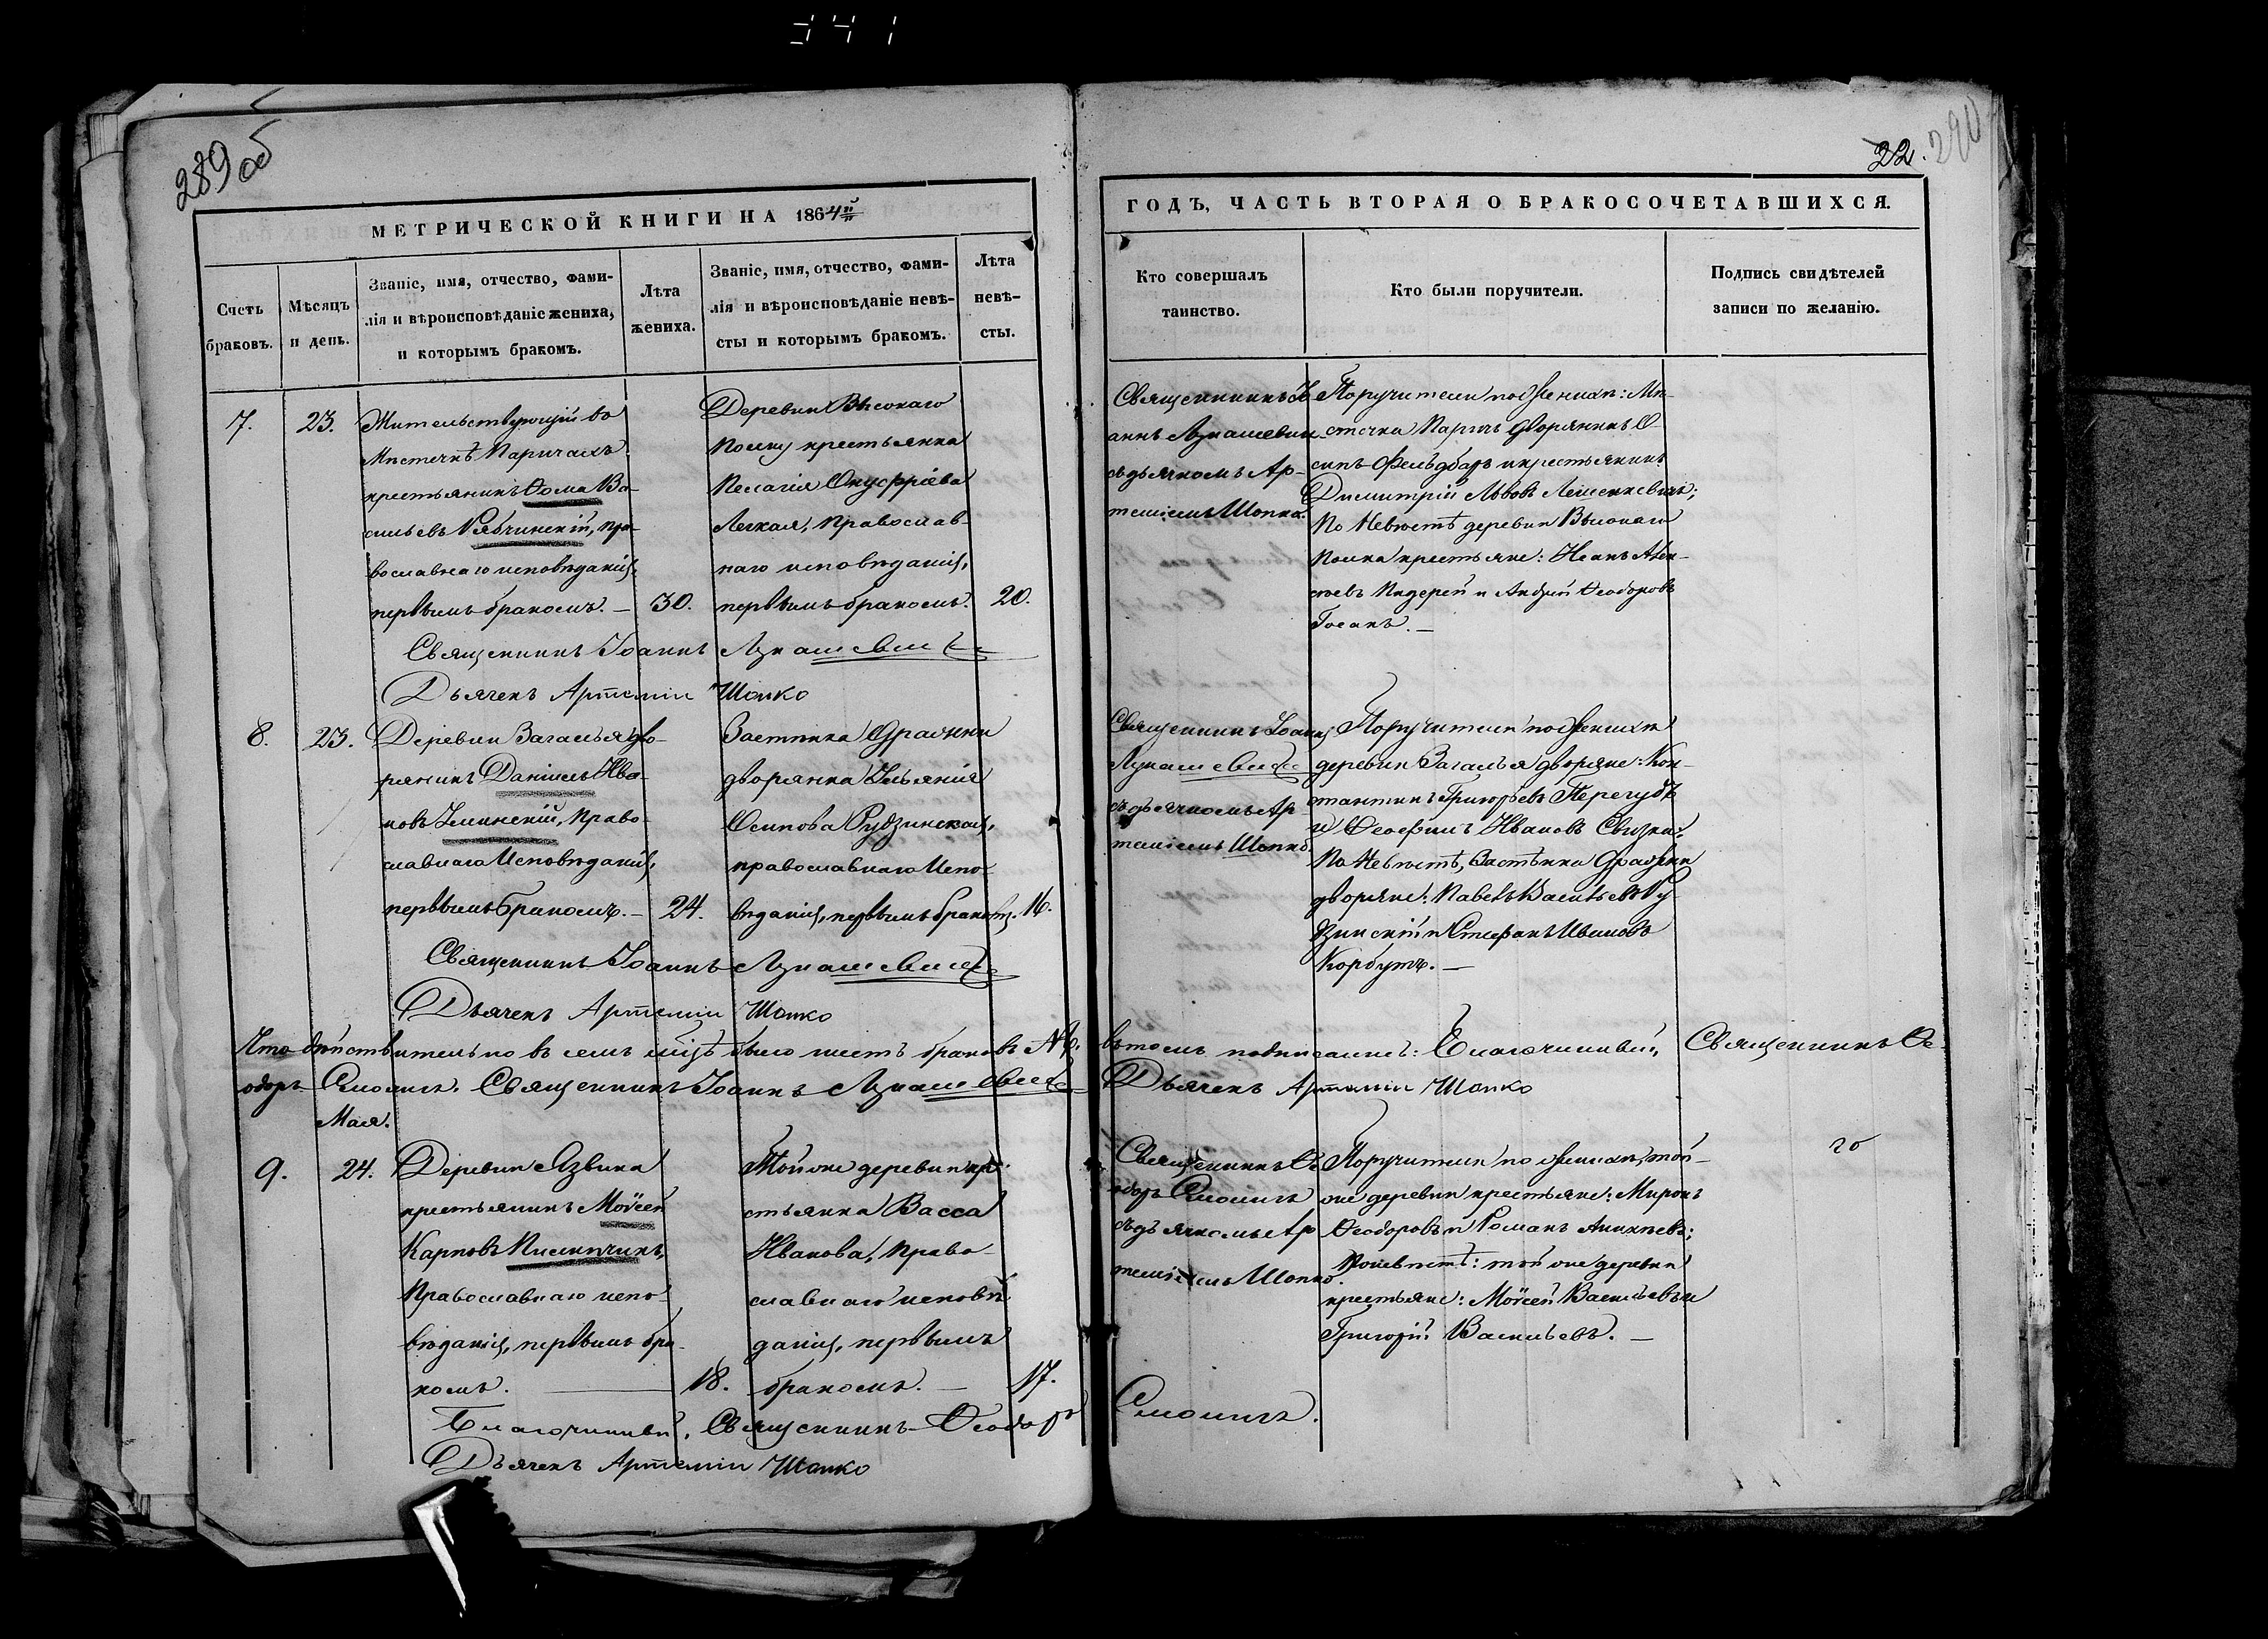 341
289 об
МЕТРИЧЕСКОЙ КНИГИ НА 1864й
Счетъ
браковъ.
Мѣсяцъ
и день.
Званіе, имя, отчество, фами-
лія и вѣроисповѣданіе жениха,
и которымъ бракомъ.
Лѣта
жениха.
Званіе, имя, отчество, фами-
лія и вѣроисповѣданіе невѣ-
сты и которымъ бракомъ.
Лѣта
невѣ-
сты.
7.
23.
Жительствующій въ
Мѣстечкѣ Паричахъ
крестьянинъ Ѳома Ва-
сильевъ Рябчинскій, пра-
вославнаго исповѣданія,
первымъ бракомъ. —
30.
Деревни Высокаго
Полку крестьянка
Пелагія Онуфріева
Легкая, православ-
наго исповѣданія,
первымъ бракомъ.
20.
Священникъ Іоаннъ Лукашевичъ
Дьячекъ Артемій Шопко
8.
23.
Деревни Загалья дво-
рянинъ Даніилъ Ива-
новъ Право-
славнаго Исповѣданія,
первымъ бракомъ. —
24.
Застѣнка Дражни
дворянка Ульянія
Осипова Рудзинская,
православнаго Испо-
вѣданія, первымъ бракомъ.
16.
Священникъ Іоаннъ Лукашевичъ
Дьячекъ Артемій Шопко
Что дѣйствительно въ семъ мѣсяцѣ было шесть браковъ № 6.
одоръ Смоличъ. Священникъ Іоаннъ Лукашевичъ
Мая.
9.
24.
Деревни Язвина
крестьянинъ Моѵсей
Карповъ
Православнаго испо-
вѣданія, первымъ бра-
комъ. —
18.
Той же деревни кре-
стьянка Васса
Иванова, Право-
славнаго исповѣ-
данія, первымъ
бракомъ. —
17.
Благочинный, Священникъ Ѳеодоръ
Дьячекъ Артемій Шопко
22. 290
ГОДЪ, ЧАСТЬ ВТОРАЯ О БРАКОСОЧЕТАВШИХСЯ.
Кто совершалъ
таинство.
Кто были поручители.
Подпись свидѣтелей
записи по желанію.
Священникъ Іо
аннъ Лукашевичъ
съ дьячкомъ Ар-
теміемъ Шопка.
Поручители по женихѣ: Мѣ-
стечка Паричъ дворянинъ О-
сипъ и крестьянинъ
Димитрій Львовъ
По Невѣстѣ деревни Высокаго
Полка крестьяне:
и Андрей Ѳеодоровъ
Священникъ Іоаннъ
Лукашевичъ
съ дьячкомъ Ар-
теміемъ Шопко.
Поручители по женихѣ
деревни Загалья дворяне: Кон-
стантинъ Григорьевъ
и Ѳеофилъ Ивановъ
По Невѣстѣ, Застѣнка Дражни
дворяне: Павелъ Васильевъ Ру-
дзинскій и Стефанъ Ивановъ
Корбутъ. —
въ томъ подписались: Благочинный, Священникъ Ѳе-
Дьячекъ Артемій Шопко
Священникъ Ѳе
одоръ Смоличъ
съ дьячкомъ Ар
теміемъ Шопко.
Поручители по женихѣ, той
же деревни крестьяне: Миронъ
Ѳеодоровъ и Романъ
По невѣстѣ: той же деревни
крестьяне: Моѵсей Васильевъ и
Григорій Васильевъ. —
Смоличъ.